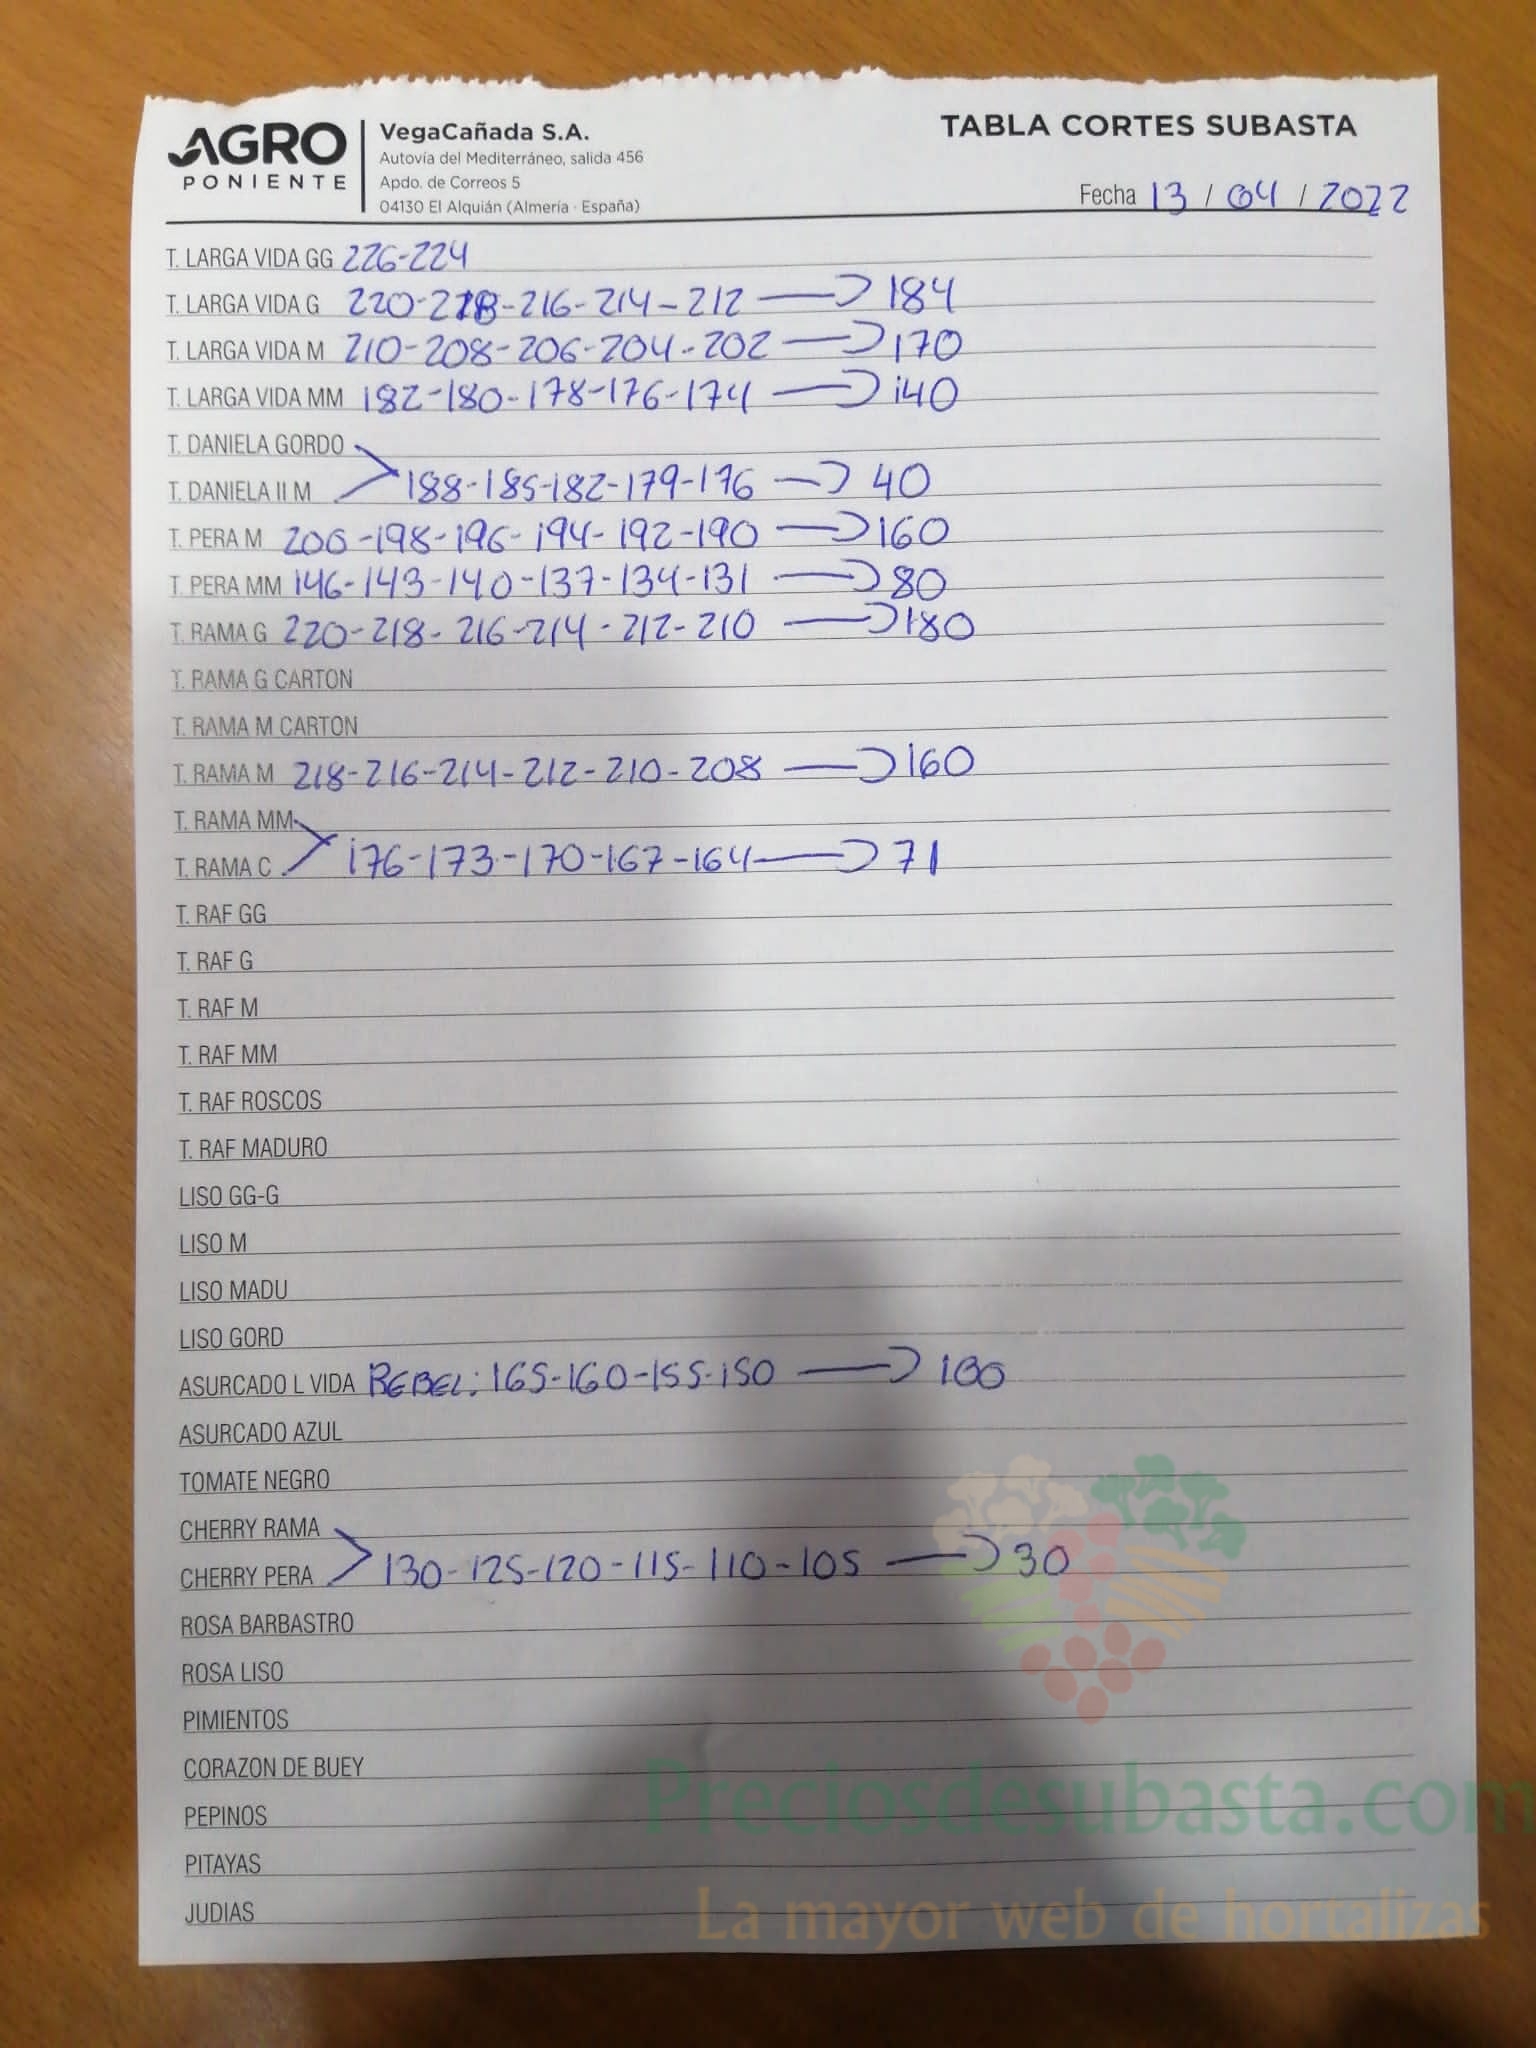 AGRO
PONIENTE
VegaCañada S.A.
Autovía del Mediterráneo, salida 456
Apdo. de Correos 5
04130 El Alquián (Almería · España)
TABLA CORTES SUBASTA
Fecha 13 / 04 / 2022
T. LARGA VIDA GG 226-224
T. LARGA VIDA G 220-218-216-214-212 → 184
T. LARGA VIDA M 210-208-206-204-202 → 170
T. LARGA VIDA MM 182-180-178-176-174 → 140
T. DANIELA GORDO
T. DANIELA II M 188-185-182-179-176 → 40
T. PERA M 200-198-196-194-192-190 → 160
T. PERA MM 146-143-140-137-134-131 → 80
T. RAMA G 220-218-216-214-212-210 → 180
T. RAMA G CARTON
T. RAMA M CARTON
T. RAMA M 218-216-214-212-210-208 → 160
T. RAMA MM
T. RAMA C 176-173-170-167-164 → 71
T. RAF GG
T. RAF G
T. RAF M
T. RAF MM
T. RAF ROSCOS
T. RAF MADURO
LISO GG-G
LISO M
LISO MADU
LISO GORD
ASURCADO L VIDA REBEL: 165-160-155-150 → 100
ASURCADO AZUL
TOMATE NEGRO
CHERRY RAMA
CHERRY PERA 130-125-120-115-110-105 → 30
ROSA BARBASTRO
ROSA LISO
PIMIENTOS
CORAZON DE BUEY
PEPINOS
PITAYAS
JUDIAS
Preciosdesubasta.com
La mayor web de hortalizas